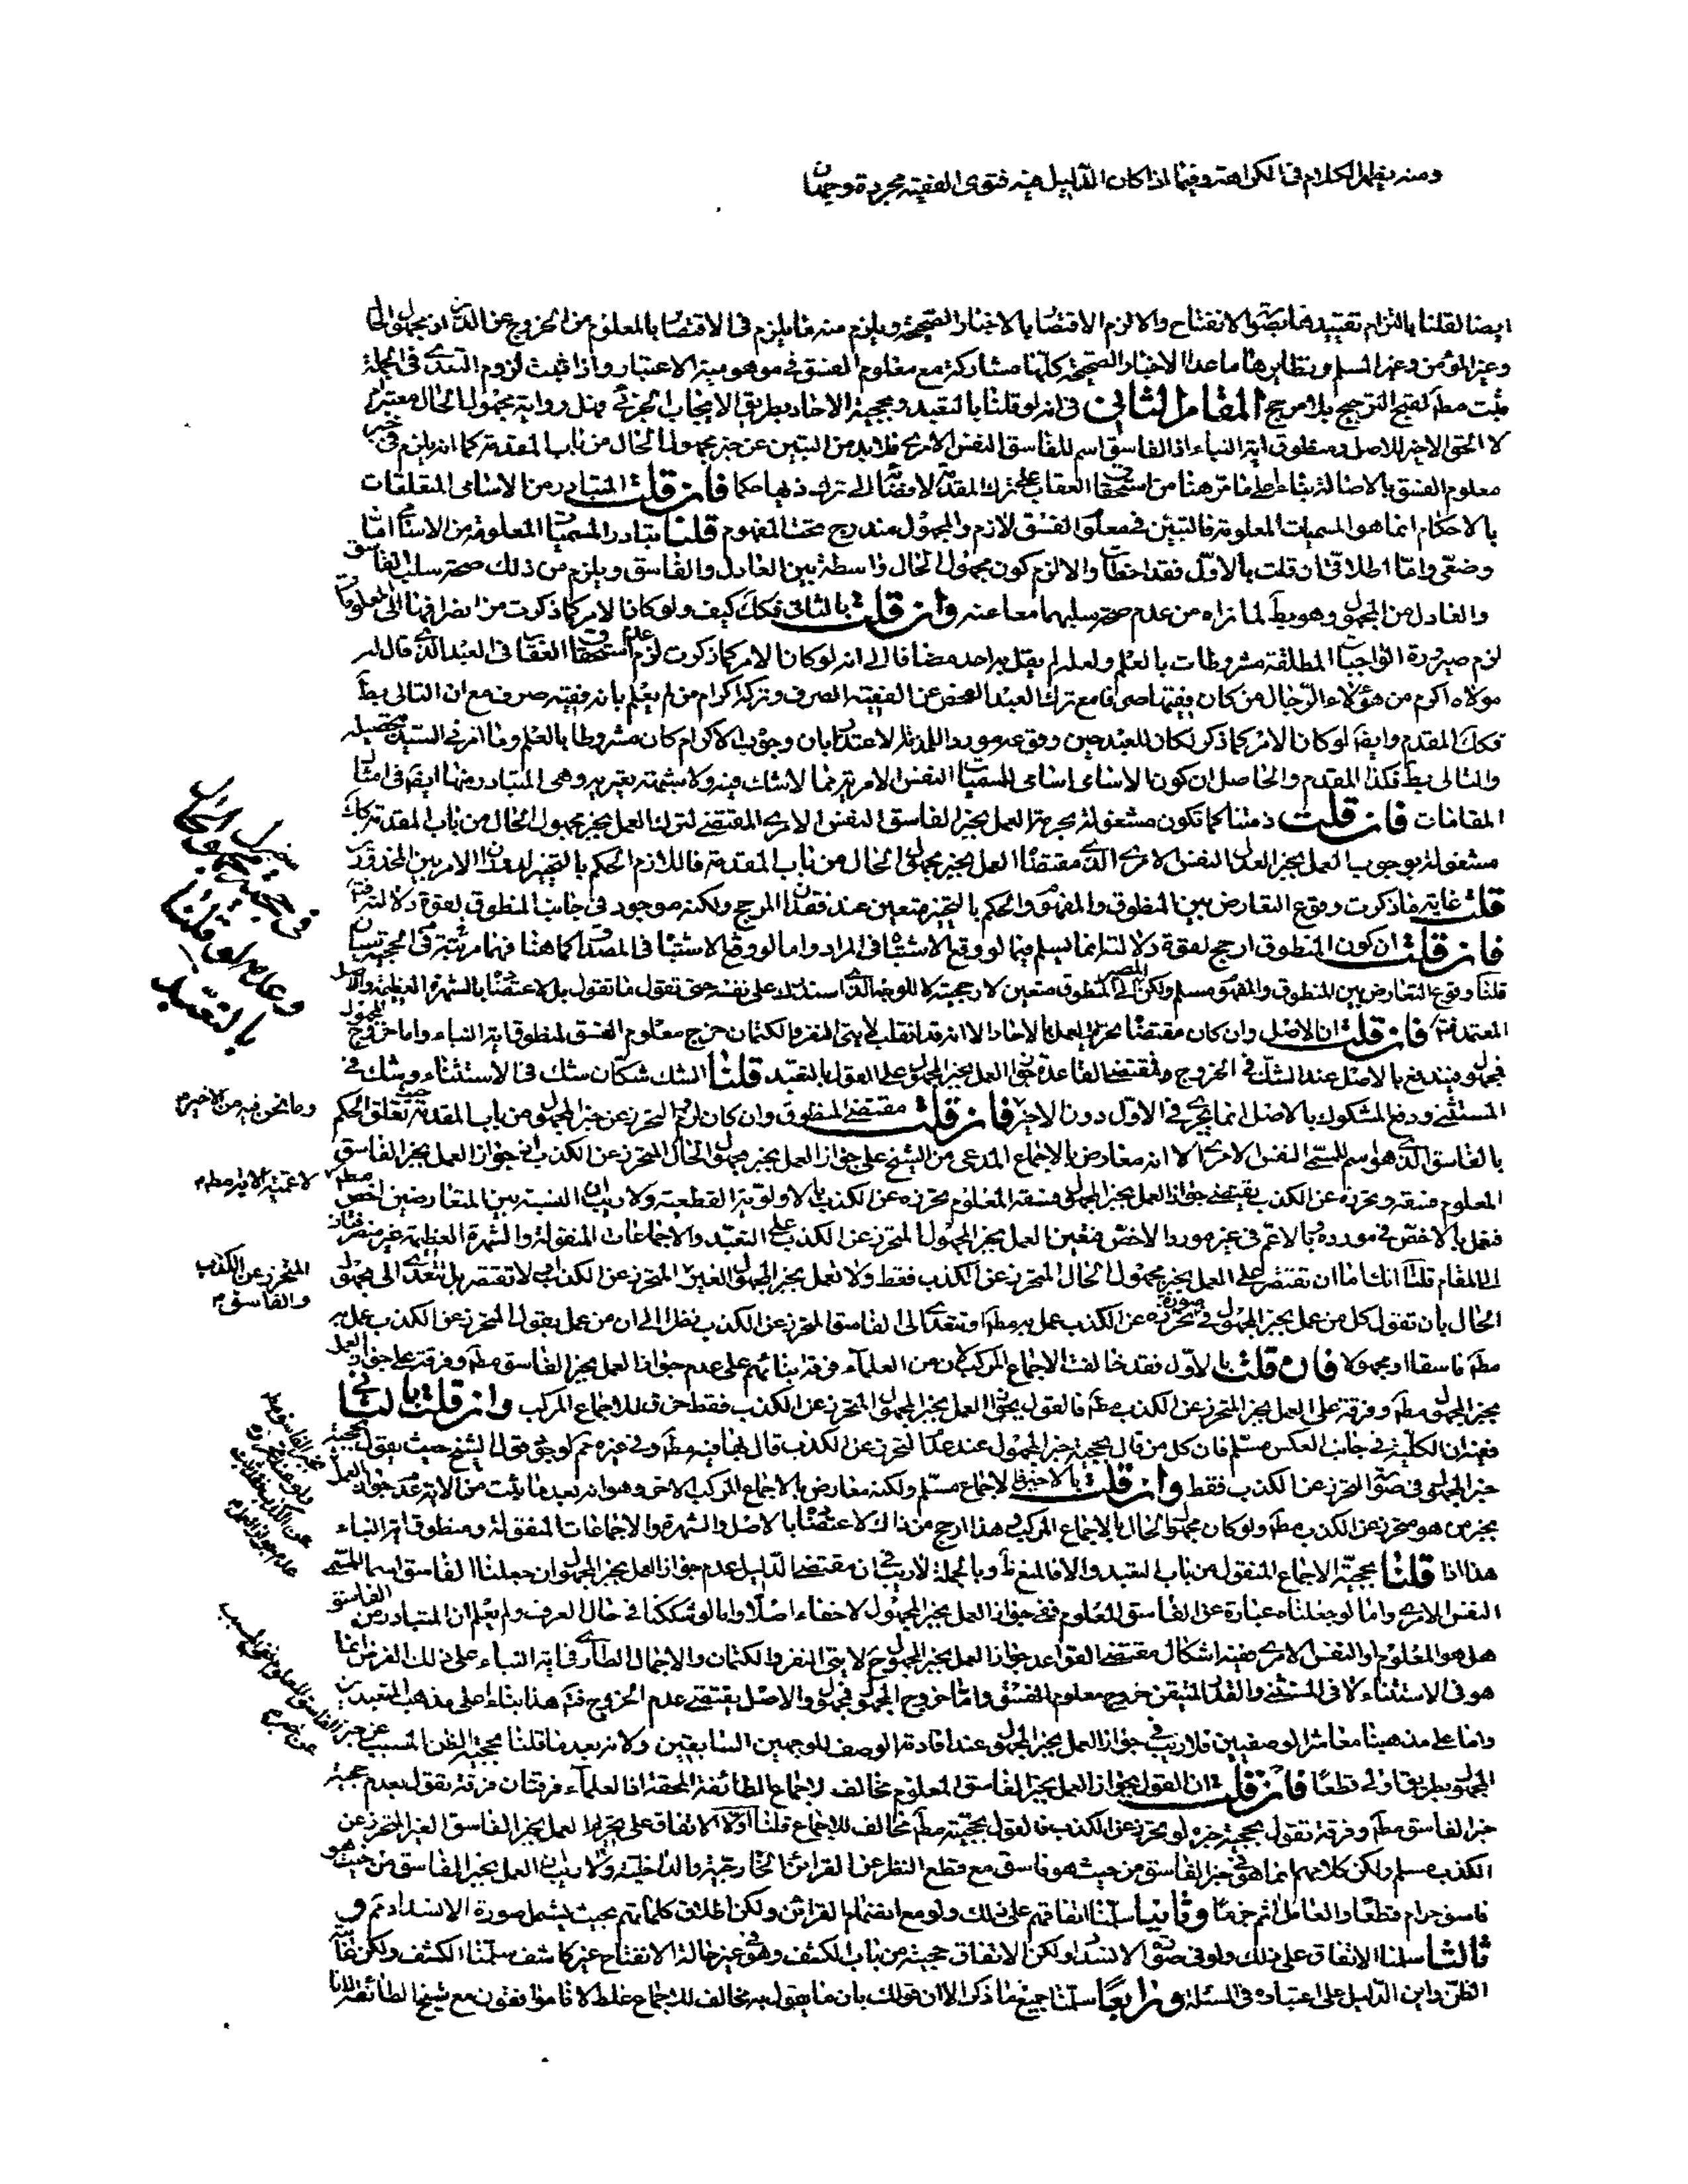 ومنه يظهر الكلام في الكراهة وفيما اذا كان الدليل فيه فتوى الفقيه مجردة وجهان
ايضا لقلنا بالتزام تقييدها بصورة الانفتاح والا لزم الاقتصار بالاخبار الصحيحة ويلزم منه ما يلزم في الاقتصار بالمعلوم من الخروج عن الدين اذ مجهول الحال
وغير المؤمن وغير المسلم ونظايرها ما عدا الاخبار الصحيحة كلها مشاركة مع معلوم الفسق في موهومية الاعتبار واذا ثبت لزوم التعدي في الجملة
يثبت مطلقا لقبح الترجيح بلا مرجح المقام الثاني في انه لو قلنا بالتعبد وبحجية الاحاد بطريق الايجاب الجزئي فهل رواية مجهول الحال معتبرة ام
لا الحق الاخير للاصل ومنطوق اية النباء اذ الفاسق اسم للفاسق النفس الامري فلا بد من التبين عن خبر مجهول الحال من باب المقدمة كما انه يلزم في خبر
معلوم الفسق بالاصالة بناء على ما مر هنا من استحقاق العقاب على ترك المقدمة لافضائه الى ترك ذيها حكما فان قلت المتبادر من الاسامي المتعلقات
بالاحكام انما هو المسميات المعلومة فالتبين في معلوم الفسق لازم والمجهول مندرج تحت المفهوم قلنا تبادر المسميات المعلومة من الاسامي اما
وضعي واما اطلاقي ان قلت بالاول فقد اخطأت والا لزم كون مجهول الحال واسطة بين العادل والفاسق ويلزم من ذلك صحة سلب الفاسق
والعادل من المجهول وهو بط لما نراه من عدم صحة سلبهما معا عنه وان قلت بالثاني فكك كيف ولو كان الامر كما ذكرت من انصرافها الى المعلومات
لزم صيرورة الواجبات المطلقة مشروطات بالعلم ولعله لم يقل به احد مضافا الى انه لو كان الامر كما ذكرت لزم عدم استحقاق العقاب في العبد الذي قال له
مولاه اكرم من هؤلاء الرجال من كان فقيها صرفا مع ترك العبد الفحص عن الفقيه الصرف وتركه اكرام من لم يعلم بانه فقيه صرف مع ان التالي بط
فكك المقدم وايضا لو كان الامر كما ذكر لكان للعبد حين وقوعه موردا للمذلة الاعتذار بان وجوب الاكرام كان مشروطا بالعلم وما امرني السيد بتحصيله
والتالي بط فكذا المقدم والحاصل ان كون الاسامي اسامي للمسميات النفس الامرية مما لا شك فيه ولا شبهة تعتريه وهي المتبادر منها ايضا في امثال
المقامات فان قلت ذمتنا كما تكون مشغولة بحرمة العمل بخبر الفاسق النفس الامري المقتضي لترك العمل بخبر مجهول الحال من باب المقدمة كك
مشغولة بوجوب العمل بخبر العدل النفس الامري الذي مقتضاه العمل بخبر مجهول الحال من باب المقدمة فاللازم الحكم بالتخيير لدوران الامر بين المحذورين
قلت غاية ما ذكرت وقوع التعارض بين المنطوق والمفهوم والحكم بالتخيير متعين عند فقدان المرجح ولكنه موجود في جانب المنطوق لقوة دلالته
فان قلت ان كون المنطوق ارجح لقوة دلالته انما يسلم فيما لو وقع الاشتباه في المراد واما لو وقع الاشتباه في المصداق كما هنا فهما مرتبة في الحجية سيان
قلنا وقوع التعارض بين المنطوق والمفهوم مسلم ولكن المصير الى المنطوق متعين لارجحيته لا للوجه الذي اسندت على نفسه حتى تقول ما تقول بل لاعتضاده بالشهرة العظيمة والاصل
المعتمد فتم فان قلت ان الاصل وان كان مقتضاه تحريم العمل بالاحاد الا انه قد انقلب لايتي النفر والكتمان خرج معلوم الفسق لمنطوق اية النباء واما خروج المجهول
فمجهول فيندفع بالاصل عند الشك في الخروج فمقتضى القاعدة جواز العمل بخبر المجهول على القول بالتعبد قلنا الشك شكان شك في الاستثناء وشك في
المستثنى ودفع المشكوك بالاصل انما يجري في الاول دون الاخير فان قلت مقتضى المنطوق وان كان لزوم التحرز عن خبر المجهول من باب المقدمة حيث تعلق الحكم
بالفاسق الذي هو اسم للمسمى النفس الامري الا انه معارض بالاجماع المدعى من الشيخ على جواز العمل بخبر مجهول الحال المتحرز عن الكذب اذ جواز العمل بخبر الفاسق
المعلوم فسقه وتحرزه عن الكذب يقتضي جواز العمل بخبر المجهول فسقه المعلوم تحرزه عن الكذب بالاولوية القطعية ولا ريب ان النسبة بين المتعارضين اخص مطلق
فنعمل بالاخص في مورده وبالاعم في غير مورد الاخص فتعين العمل بخبر المجهول المتحرز عن الكذب على التعبد والاجماعات المنقولة والشهرة العظيمة غير منصرفتان
الى المقام قلنا انك اما ان تقتصر على العمل بخبر مجهول الحال المتحرز عن الكذب فقط ولا تعمل بخبر المجهول الغير المتحرز عن الكذب او لا تقتصر بل تتعدى الى مجهول
الحال بان تقول كل من عمل بخبر المجهول في صورة تحرزه عن الكذب عمل به مطلقا وتتعدى الى الفاسق المتحرز عن الكذب نظرا الى ان من عمل بقول المتحرز عن الكذب عمل به
مطلقا فاسقا او مجهولا فان قلت بالاول فقد خالفت الاجماع المركب لان من العلماء فرقة بنائهم على عدم جواز العمل بخبر الفاسق مطلقا وفرقة على جواز العمل
بخبر المجهول مطلقا وفرقة على العمل بخبر المتحرز عن الكذب مطلقا فالقول بجواز العمل بخبر المجهول المتحرز عن الكذب فقط خرق للاجماع المركب وان قلت بالثاني
فغير ان الكلية في جانب العكس مسلم فان كل من قال بحجية خبر المجهول عند عدم التحرز عن الكذب قال بها فيه مطلقا وفي غيره ثم لوجود قول الشيخ حيث يقول بحجية
خبر المجهول في صورة التحرز عن الكذب فقط وان قلت بالاخير فالاجماع مسلم ولكنه معارض بالاجماع المركب الاخر وهو انه بعد ما يثبت من الاية عدم جواز العمل
بخبر من هو متحرز عن الكذب مطلقا ولو كان مجهول الحال بالاجماع المركب هذا ارجح من ذاك لاعتضاده بالاصل والشهرة والاجماعات المنقولة ومنطوق اية النباء
هذا اذا قلنا بحجية الاجماع المنقول من باب التعبد والا فالمنع ظ وبالجملة لا ريب في ان مقتضى الدليل عدم جواز العمل بخبر المجهول ان جعلنا الفاسق اسما للمسمى
النفس الامري واما لو جعلناه عبارة عن الفاسق المعلوم ففي جواز العمل بخبر المجهول لا خفاء اصلا واما لو شككنا في حال العرف ولم يعلم ان المتبادر من الفاسق
هل هو المعلوم او النفس الامري ففيه اشكال مقتضى القواعد جواز العمل بخبر المجهول ح لايتي النفر والكتمان والاجمال الطاري في اية النباء على ذلك الفرض انما
هو في الاستثناء لا في المستثنى والقدر المتيقن خروج معلوم الفسق واما خروج المجهول فمجهول والاصل يقتضي عدم الخروج فتم هذا بناء على مذهب المتعبدين
واما على مذهبنا معاشر الوصفيين فلا ريب في جواز العمل بخبر المجهول عند افادة الوصف للوجهين السابقين ولانه بعد ما قلنا بحجية الظن المسبب عن خبر الفاسق
المجهول بطريق اولى قطعا فان قلت ان القول بجواز العمل بخبر الفاسق المعلوم مخالف لاجماع الطائفة المحقة اذ العلماء فرقتان فرقة تقول بعدم حجية
خبر الفاسق مطلقا وفرقة تقول بحجية خبره لو تحرز عن الكذب فالقول بحجيته مطلقا مخالف للاجماع قلنا اولا الاتفاق على تحريم العمل بخبر الفاسق الغير المتحرز عن
الكذب مسلم ولكن كلامهم انما هو في خبر الفاسق من حيث هو فاسق مع قطع النظر عن القرائن الخارجية والداخلية ولا ريب ان العمل بخبر الفاسق من حيث هو
فاسق حرام قطعا والعامل اثم جزما وثانيا سلمنا اتفاقهم على ذلك ولو مع انضمام القرائن ولكن اطلاق كلماتهم بحيث يشمل صورة الانسداد ثم و
ثالثا سلمنا الاتفاق على ذلك ولو في صورة الانسداد ولكن الاتفاق حجيته من باب الكشف وهو في غير حالة الانفتاح غير كاشف سلمنا الكشف ولكن غايته
الظن واين الدليل على اعتباره في المسئلة ورابعا سلمنا جميع ما ذكر الا ان قولك بان ما نقول به مخالف للاجماع غلط لانا موافقون مع شيخ الطائفة لانا
في حجية مجهول الحال
وعدمه لو قلنا
بالتعبد
وما نحن فيه من الاخير م
لاعمية الاية مطلقا م
المتحرز عن الكذب
والفاسق م